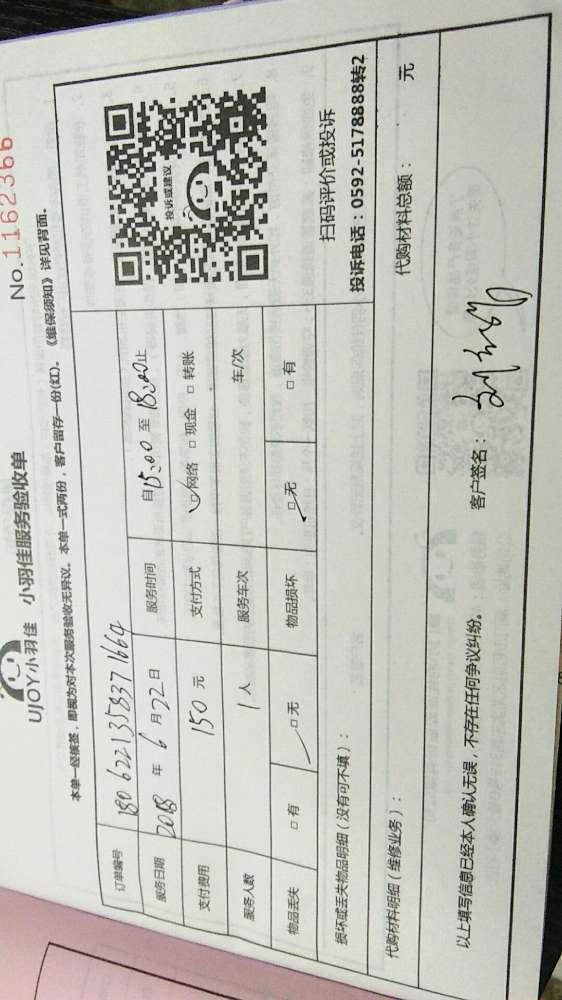 No.1162366
UJOY小羽佳 小羽佳服务验收单
本单一经核签，即视为对本次服务验收无异议。本单一式两份，客户留存一份(红)。《维保须知》详见背面。
订单编号 1806221358371664
服务日期 2018 年 6 月 22 日 服务时间 自15:00 至 18:00止
支付费用 150 元 支付方式 ☑网络 □现金 □转账
服务人数 1 人 服务车次 车/次
物品丢失 □有 ☑无 物品损坏 ☑无 □有
投诉或建议
扫码评价或投诉
投诉电话：0592-5178888转2
损坏或丢失物品明细（没有可不填）：
代购材料明细（维修业务）： 代购材料总额： 元
以上填写信息已经本人确认无误，不存在任何争议纠纷。 客户签名：